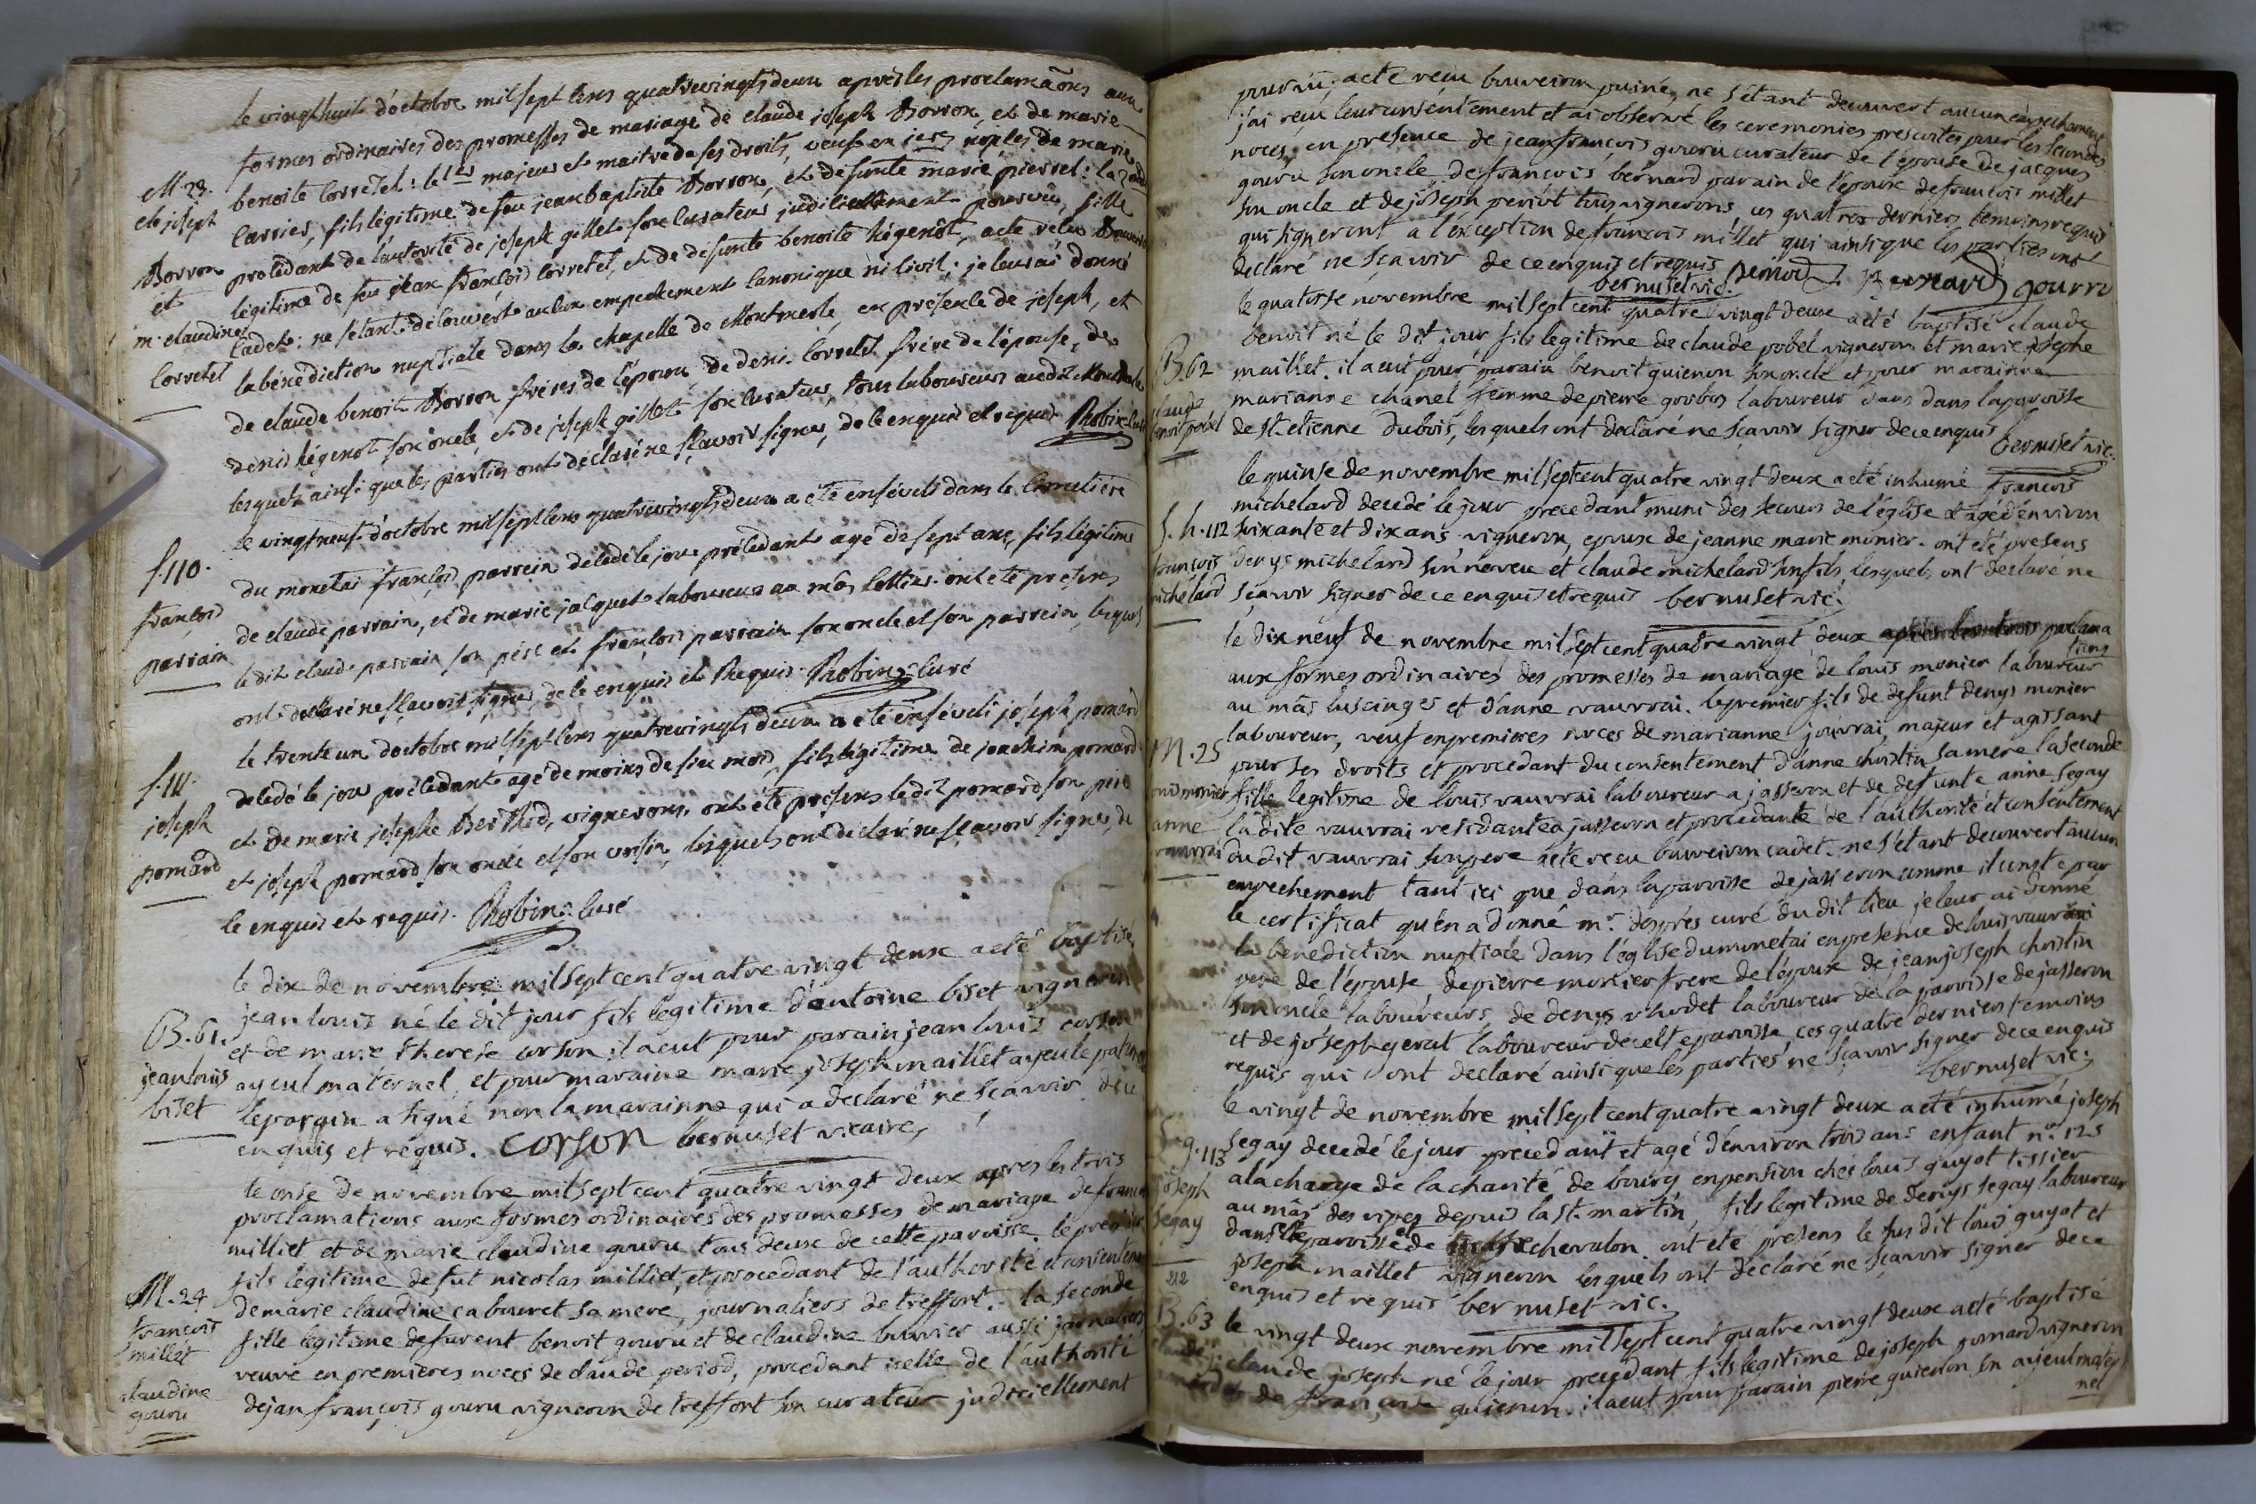 le vingthuit d'octobre mil sept cens quatrevingts deux après les proclamãons aux
formes ordinaires des promesses de mariage de claude joseph Borron, et de marie
M 23.
benoite Corretel: le 1er majeur et maitre de ses droits, veuf en 1eres nopces de marie
cl. joseph
Carrier, fils légitime de feu jean baptiste Borron, et defunte marie pierrel: la 2de
Borron
procédant de l'autorité de joseph gillet son curateur judiciellement pourvû, fille
et
légitime de feu jean françois Corretel, et de defunte benoite hégenot, acte reçu
m. claudine
cadet: ne s'étant découvert aucun empechement canonique ni civil; je leur ai donné
Corretel
la bénédiction nuptiale dans la chapelle de Montmerle, en présence de joseph, et
de claude benoit Borron frères de l'époux, de denis Corretel frère de l'épouse, de
denis hégenot son oncle, et de joseph gillet son curateur, tous laboureurs audit Montmerle
lesquels ainsi que les parties ont déclaré ne sçavoir signer, de ce enquis et requis Robin curé
le vingtneuf d'octobre mil sept cens quatrevingts deux a été enséveli dans le Cimetière
f. 110.
du monetai françois parrain décédé le jour précédant agé de sept ans, fils légitime
françois
de claude parrain, et de marie jacquet laboureurs au mâs Cottiere. ont été presens
parrain
ledit claude parrain son père et françois parrain son oncle et son parrein lesquels
ont déclaré ne sçavoir signer, de ce enquis et Requis. Robin curé
le trente un d'octobre mil sept cens quatrevingts deux a été enséveli joseph pomard
f. 111.
décédé le jour précédant agé de moins de six mois, fils légitime de joachim pomard
joseph
et de marie josephe Berthod, vignerons, ont été présens ledit pomard son père
pomard
et joseph pomard son oncle et son cousin, lesquels ont déclaré ne sçavoir signer, de
ce enquis et requis. Robin curé
le dix de novembre mil sept cent quatre vingt deux a eté baptisé
jean louis né le dit jour fils legitime d'antoine biset vigneron
B. 61.
et de marie therese corson il a eut pour parain jean louis corson
jean louis
ayeul maternel et pour maraine marie joseph maillet ayeule paternel
biset
le pargin a signé non la marainne qui a declaré ne scavoir de ce
enquis et réquis. corson bernuset vicaire
le onse de novembre mil sept cent quatre vingt deux apres les trois
proclamations aux formes ordinaires des promesses de mariage de francois
milliet et de marie claudine gouru tous deux de cette paroisse. le premier
fils legitime de fut nicolas milliet, et procedant de l'authorité et consentement
M. 24
de marie claudine cabouret sa mere, journaliers de treffort. la seconde
francois
fille legitime de furent benoit gouru et de claudine bouvier aussi journaliers
millet
veuve en premieres noces de claude period, procedant icelle de l'authorité
claudine
gouru
de jan françois gouru vigneron de treffort son curateur judiciellement
pourvu; acte reçu bouveiron puiné, ne s'étant decouvert aucun empechement
j'ai reçu leur consentement et ai observé les ceremonies prescrites pour les secondes
noces, en presence de jean françois gouru curateur de l'épouse de jacques
gouru son oncle de francois bernard parain de l'epoux de francois millet
son oncle et de joseph periôt tous vignerons, ces quatres derniers temoins requis
qui signeront a l'éxception de francois millet qui ainsi que les parties ont
declaré ne sçavoir de ce enquis et requis
bernuset vic. Period Bernard gourru
le quatorse novembre mil sept cent quatre vingt deux a eté baptisé claude
benoit né le dit jour fils legitime de claude pobel vigneron et marie josephe
B. 62
maillet. il a eut pour parain benoit guienon son oncle et pour marainne
claude
marianne chanel femme de pierre gorbon laboureur dans dans la paroisse
benoit pobel
de St. etienne dubois, les quels ont declaré ne sçavoir signer de ce enquis
bernuset vic.
le quinse de novembre mil sept cent quatre vingt deux a eté inhumé francois
michelard decedé le jour precedant muni des secours de l'église et agé d'environ
S. h. 112
soixante et dix ans vigneron, epoux de jeanne marie monier. ont eté presens
francois
denys michelard son neveu et claude michelard son fils, lesquels ont declaré ne
michelard
sçavoir signer de ce enquis et requis bernuset vic.
le dix neuf de novembre mil sept cent quatre vingt deux proclama
tions
aux formes ordinaires des promesses de mariage de louis monier laboureur
au mâs luscinges et d'anne vauvrai. le premier fils de defunt denys monier
laboureur, veuf en premieres noces de marianne jouvrai, majeur et agissant
M. 25
pour ses droits et procedant du consentement d'anne christin sa mere la seconde
louis monier
fille legitime de louis vauvrai laboureur a jasseron et de defunte anne segay
anne
la dite vauvrai residante a jasseron et procedante de l'authorité et consentement
vauvrai
du dit vauvrai son pere acte recu bouveiron cadet. ne s'étant decouvert aucun
empechement tant ici que dans la paroisse de jasseron comme il conste par
le certificat qu'en a donné mr. desprès curé du dit lieu je leur ai donné
la benediction nuptiale dans l'église du monetai en presence de louis vauvrai
pere de l'épouse, de pierre monier frere de l'époux de jean joseph christin
son oncle laboureurs, de denys rhodet laboureur de la paroisse de jasseron
et de joseph gerat laboureur de cette paroisse, ces quatre derniers temoins
requis qui ont declaré ainsi que les parties ne sçavoir signer de ce enquis
bernuset vic.
le vingt de novembre mil sept cent quatre vingt deux a eté inhumé joseph
S. g. 113
segay decedé le jour precedant et agé d'environ trois ans enfant no. 125
joseph
a la charge de la charité de bourg en pension chés louis guyot tissier
segay
au mâs des vipes depuis la st. martin, fils legitime de denys segay laboureur
dans cette paroisse et de chevalon. ont eté presens le sus dit louis guyot et
joseph maillet vigneron lesquels ont declaré ne sçavoir signer de ce
212
enquis et requis bernuset vic.
B. 63
le vingt deux novembre mil sept cent quatre vingt deux a eté baptisé
claude
claude joseph né le jour precedant fils legitime de joseph pomard vigneron
et de françoise guienon. il a eut pour parain pierre guienon son ayeul mater
nel